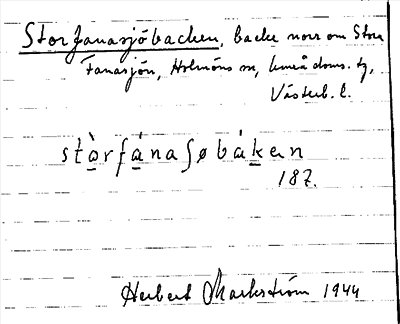 Storfanasjöbacken, backe norr om Stora
Fanasjön, Holmöns sn, Umeå doms. tg,
Västerb. l.
stàrfánaʃøbákan
187.
Herbert Markström 1944